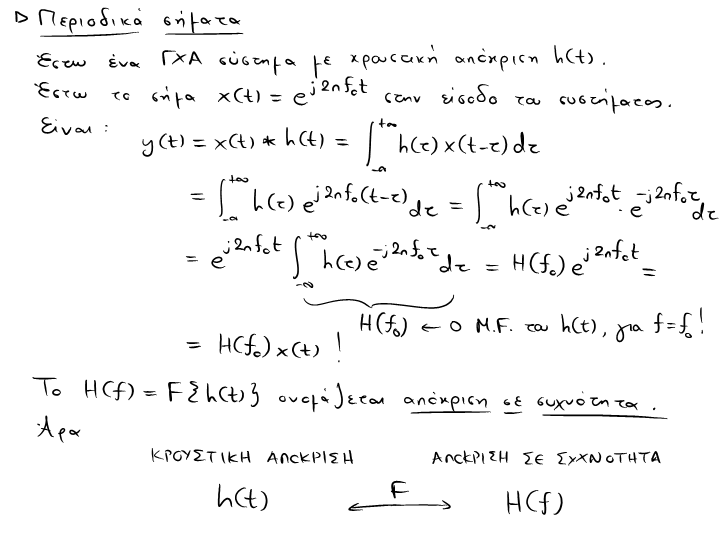 ▷ Περιοδικά σήματα
Έστω ένα ΓΧΑ σύστημα με κρουστική απόκριση h(t).
Έστω το σήμα x(t) = e^{j2πf₀t} στην είσοδο του συστήματος.
Είναι :
y(t) = x(t) * h(t) = ∫_{-∞}^{+∞} h(τ) x(t-τ) dτ
= ∫_{-∞}^{+∞} h(τ) e^{j2πf₀(t-τ)} dτ = ∫_{-∞}^{+∞} h(τ) e^{j2πf₀t} · e^{-j2πf₀τ} dτ
= e^{j2πf₀t} ∫_{-∞}^{+∞} h(τ) e^{-j2πf₀τ} dτ = H(f₀) e^{j2πf₀t} =
H(f₀) ← ο Μ.F. του h(t), για f=f₀ !
= H(f₀) x(t) !
Το H(f) = F{h(t)} ονομάζεται απόκριση σε συχνότητα.
Άρα
ΚΡΟΥΣΤΙΚΗ ΑΠΟΚΡΙΣΗ ΑΠΟΚΡΙΣΗ ΣΕ ΣΥΧΝΟΤΗΤΑ
h(t) ⟷ F H(f)